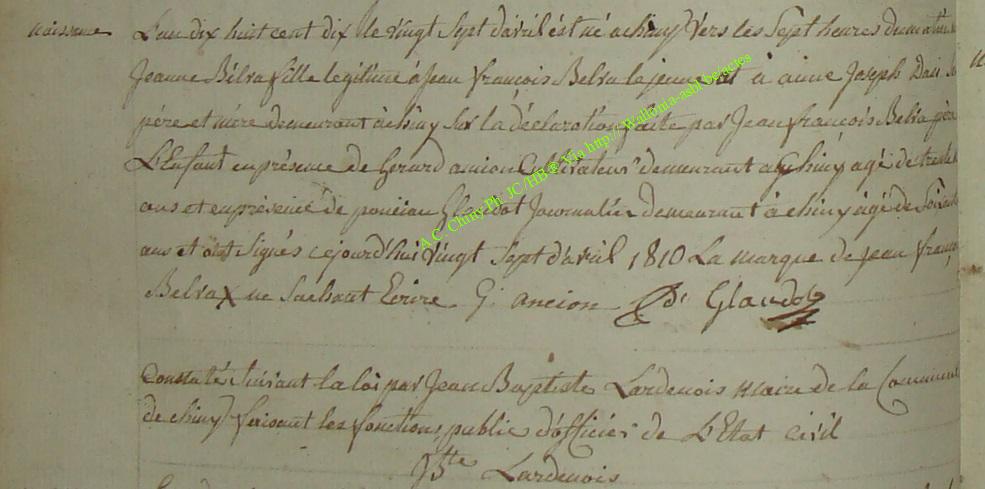 naissance
L'an dix huit cent dix le vingt Sept d'avril est né a chiny vers les Sept heures du matin
Jeanne Belva fille legitime à Jean françois Belva le jeune et à anne Joseph
père et mère demeurant à chiny Sur la déclaration faite par Jean françois Belva père
L'Enfant en présence de Gerard ancion Cultivateur demeurant a Chiny agé de
ans et en présence de Glaudot Journalier demeurant à chiny âgé de Soixante
ans et ont Signés cejourd'hui Vingt Sept d'avril 1810 La marque de Jean franç
Belva X ne Sachant Ecrire G. ancion Glaudot
Constaté Suivant la loi par Jean Baptiste Lardenois maire de la Commune
de chiny faisant les fonctions public d'officier de L'Etat civil
Bte Lardenois
A.C. Chiny Ph. JC/HB ® Via http://Wallonia-asbl.be/actes